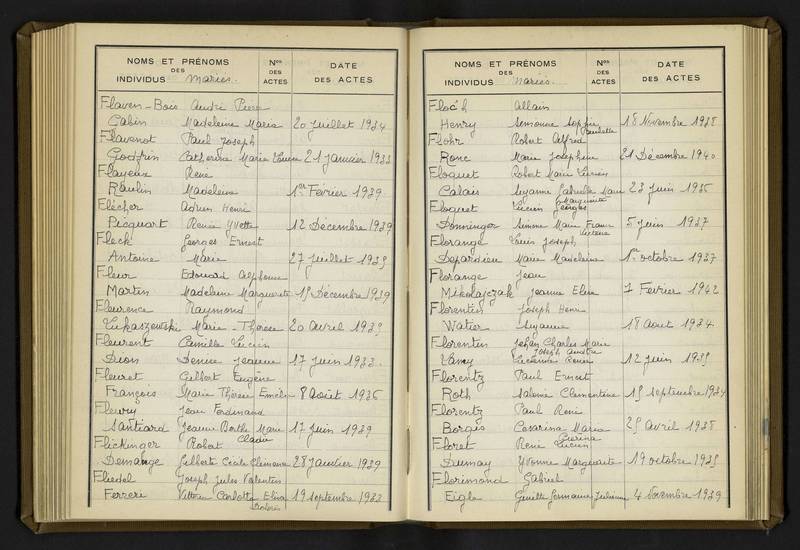 NOMS ET PRÉNOMS
DES
INDIVIDUS Mariés.
Nos
DES
ACTES
DATE
DES ACTES
Flaven-Bois André Pierre
Gabin Madeleine Maria 20 juillet 1934
Flavenot Paul Joseph
Godfrin Catherine Marie Louise 21 janvier 1933
Flayeux René
Raulin Madeleine 1er Février 1939
Flécher Adrien Henri
Picquart Renée Yvette 12 Décembre 1939
Fleck Georges Ernest
Antoine Marie 27 juillet 1935
Fleur Edouard Alphonse
Martin Madeleine Marguerite 15 Décembre 1939
Fleurence Raymond
Lukaszewski Marie-Thérèse 20 avril 1935
Fleurent Camille Lucien
Dron Denise Jeanne 17 juin 1933
Fleuret Gilbert Eugène
François Marie Thérèse 8 Août 1936
Fleury Jean Ferdinand
Santiard Jeanne Berthe Marie 17 juin 1939
Flickinger Robert
Demange Gilberte Cécile 28 janvier 1939
Fliedel Joseph Jules Valentin
Ferrere Carlotta Elisa 19 septembre 1933
NOMS ET PRÉNOMS
DES
INDIVIDUS Mariés.
Nos
DES
ACTES
DATE
DES ACTES
Floc'h Allain
Henry Simonne Sophie Paulette 18 Novembre 1938
Flohr Robert Alfred
Ronc Marie Joséphine 21 Décembre 1940
Floquet Robert Marie Lucien
Calais Suzanne Gabrielle Marie Marguerite 23 juin 1936
Floquet Lucien Georges
Donninger Simone Marie 5 juin 1937
Florange Louis Joseph
Depardieu Marie Madeleine 1er octobre 1937
Florange Jean
Mikolajczak Jeanne 7 Février 1942
Florentin Joseph Henri
Watier Suzanne 18 août 1934
Florentin Jehan Charles Marie
Joseph André
Lucienne Renée 12 juin 1935
Florentz Paul Ernest
Roth Salomé Clémentine 15 septembre 1934
Florentz Paul René
Borgis Cesarina Maria 25 avril 1938
Floret René Lucien
Dumay Yvonne Marguerite 19 octobre 1935
Florimond Gabriel
Eigle Ginette Germaine Julienne 4 Novembre 1939